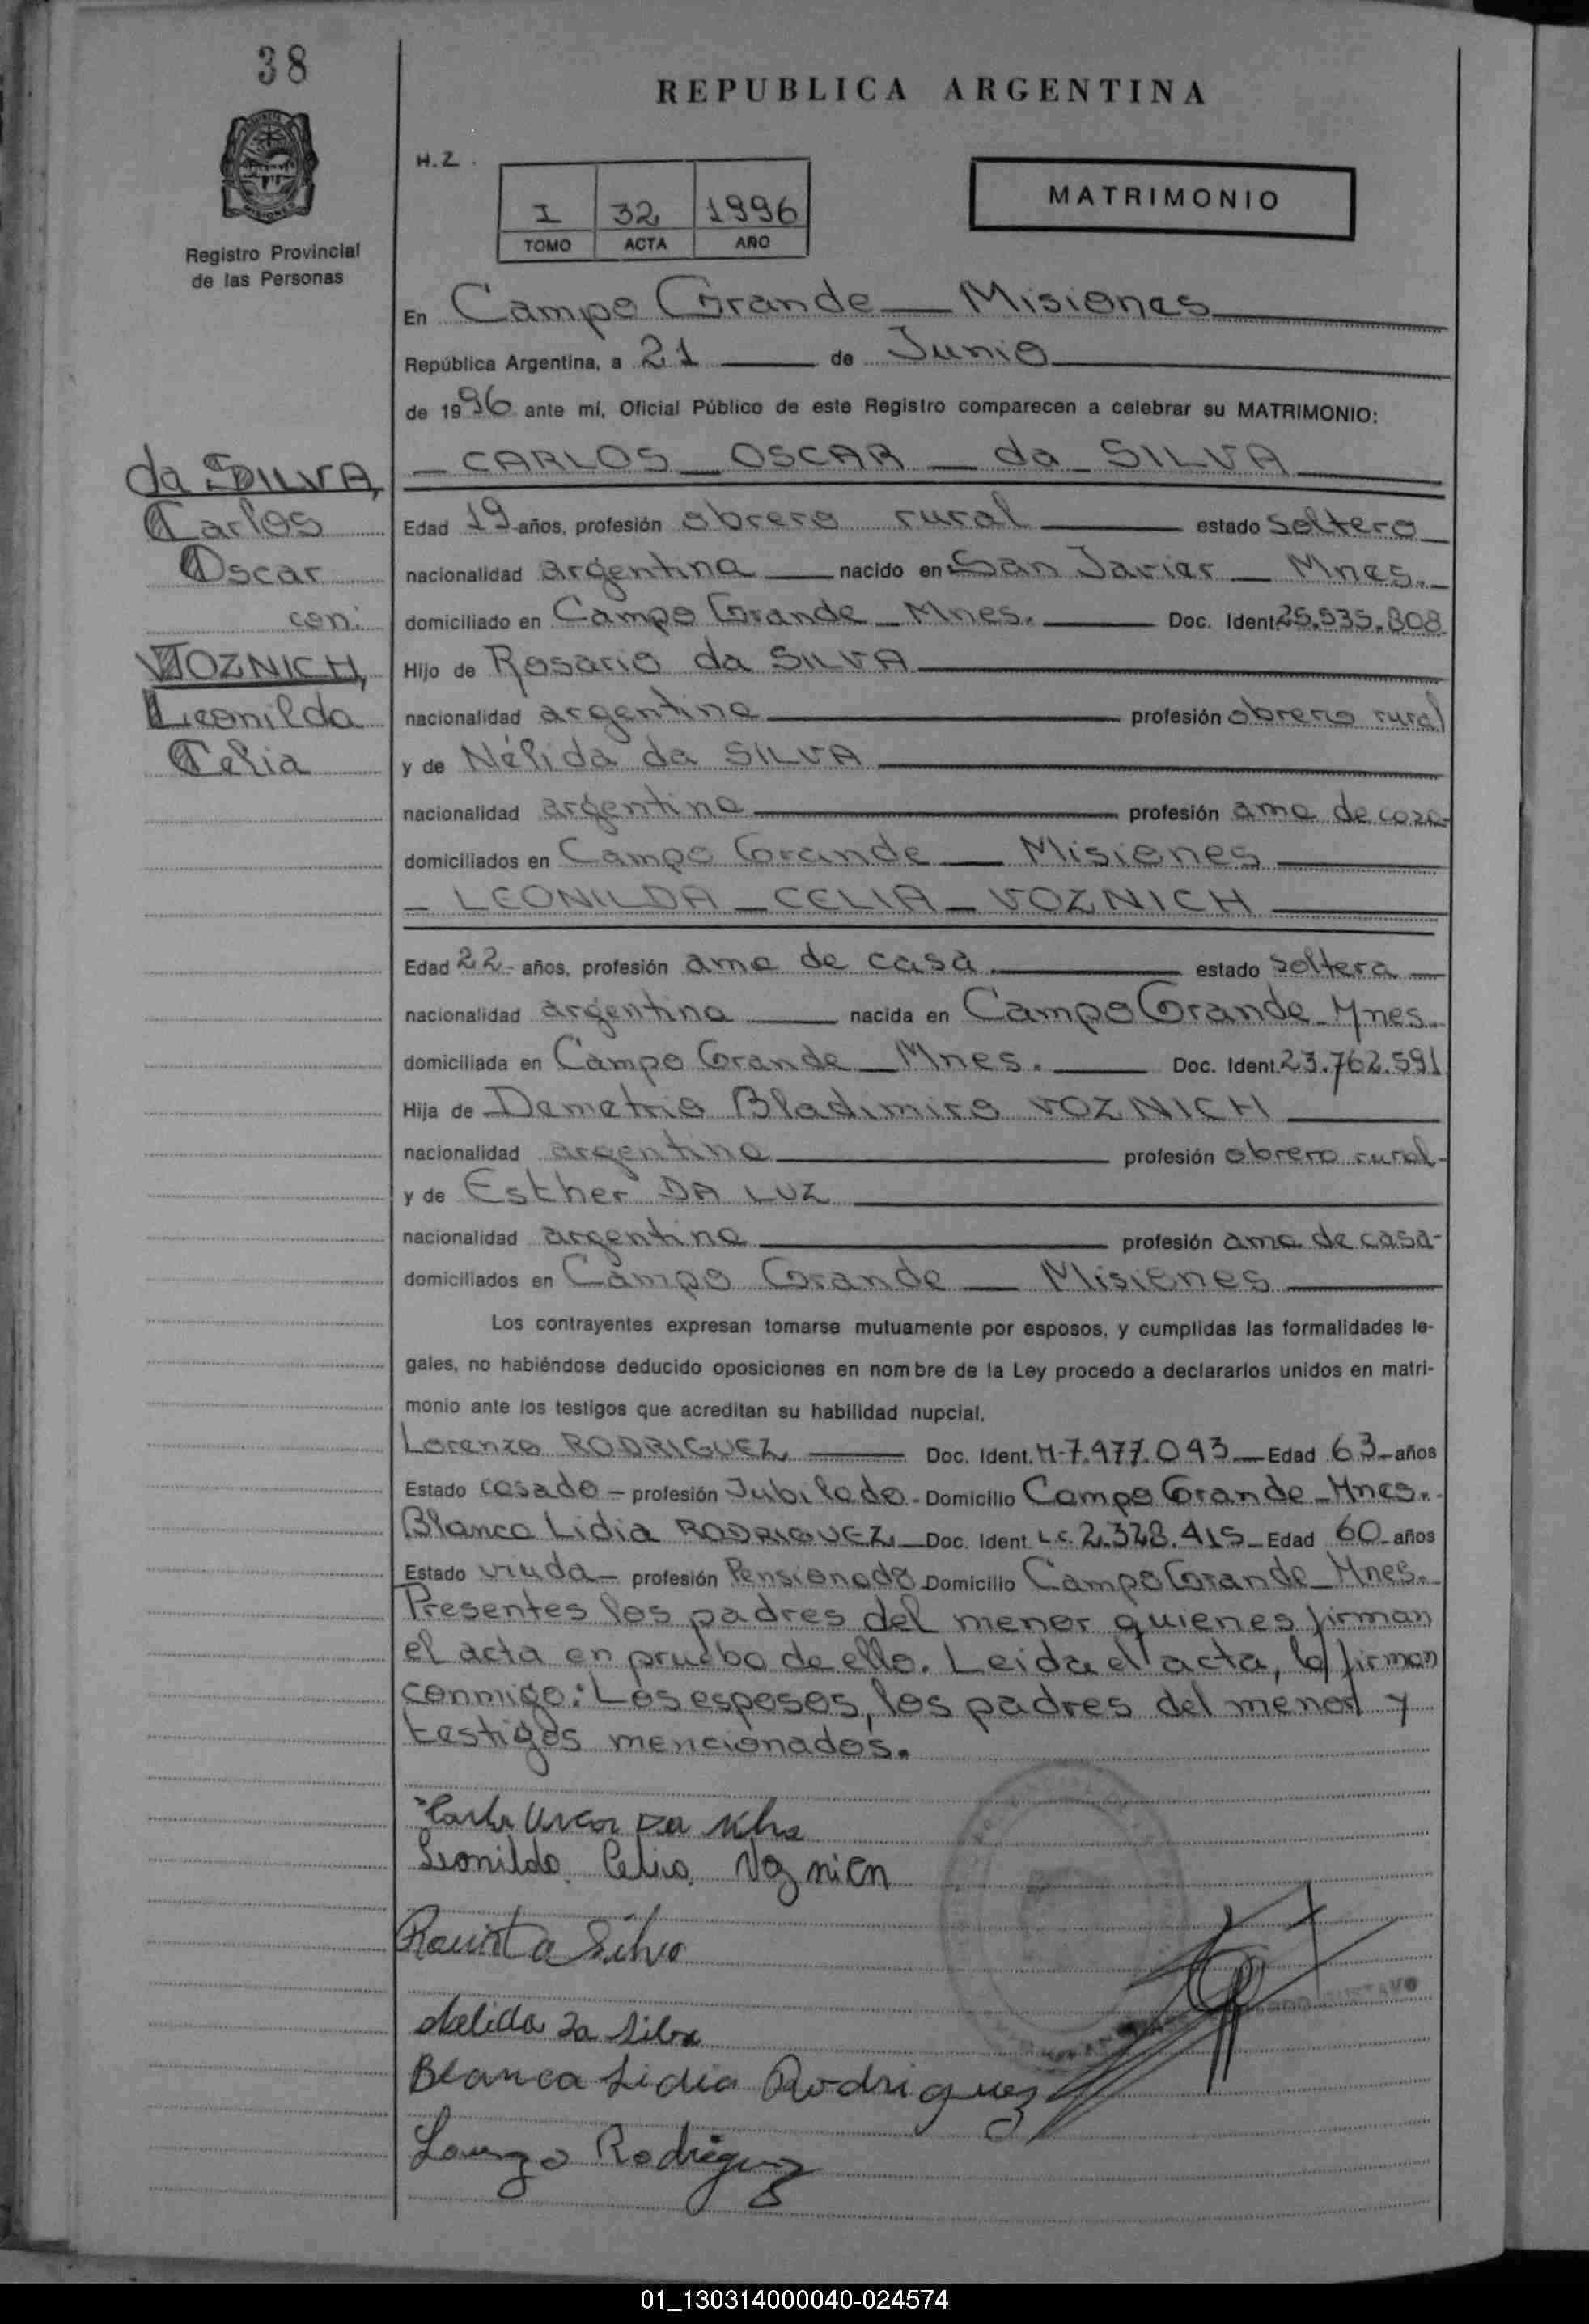 38
REPUBLICA ARGENTINA
H.Z.
I 32 1996
TOMO ACTA AÑO
MATRIMONIO
Registro Provincial
de las Personas
En Campo Grande — Misiones
República Argentina, a 21 de Junio
de 1996 ante mí, Oficial Público de este Registro comparecen a celebrar su MATRIMONIO:
da SILVA,
Carlos
Oscar
con:
VOZNICH,
Leonilda
Celia
— CARLOS — OSCAR — da — SILVA
Edad 19 años, profesión obrero rural estado soltero
nacionalidad argentina nacido en San Javier — Mnes.
domiciliado en Campo Grande — Mnes. Doc. Ident. 25.535.808
Hijo de Rosario da SILVA
nacionalidad argentina profesión obrero rural
y de Nélida da SILVA
nacionalidad argentina profesión ama de casa
domiciliados en Campo Grande — Misiones
— LEONILDA — CELIA — VOZNICH
Edad 22 años, profesión ama de casa estado soltera
nacionalidad argentina nacida en Campo Grande — Mnes.
domiciliada en Campo Grande — Mnes. Doc. Ident. 23.762.591
Hija de Demetrio Bladimiro VOZNICH
nacionalidad argentina profesión obrero rural-
y de Esther DA LUZ
nacionalidad argentina profesión ama de casa-
domiciliados en Campo Grande — Misiones
Los contrayentes expresan tomarse mutuamente por esposos, y cumplidas las formalidades le-
gales, no habiéndose deducido oposiciones en nombre de la Ley procedo a declararlos unidos en matri-
monio ante los testigos que acreditan su habilidad nupcial.
Lorenzo RODRIGUEZ Doc. Ident. M-7.477.093 — Edad 63 años
Estado casado — profesión Jubilado - Domicilio Campo Grande — Mnes.
Blanca Lidia RODRIGUEZ — Doc. Ident. L.C. 2.328.415 — Edad 60 años
Estado viuda — profesión Pensionada Domicilio Campo Grande — Mnes.
Presentes los padres del menor quienes firman
el acta en prueba de ello. Leida el acta, la firman
conmigo: Los esposos, los padres del menor y
testigos mencionados.
Leonilda Celia Voznich
Silva
Nelida Da Silva
Blanca Lidia Rodriguez
Lorenzo Rodriguez
01_130314000040-024574